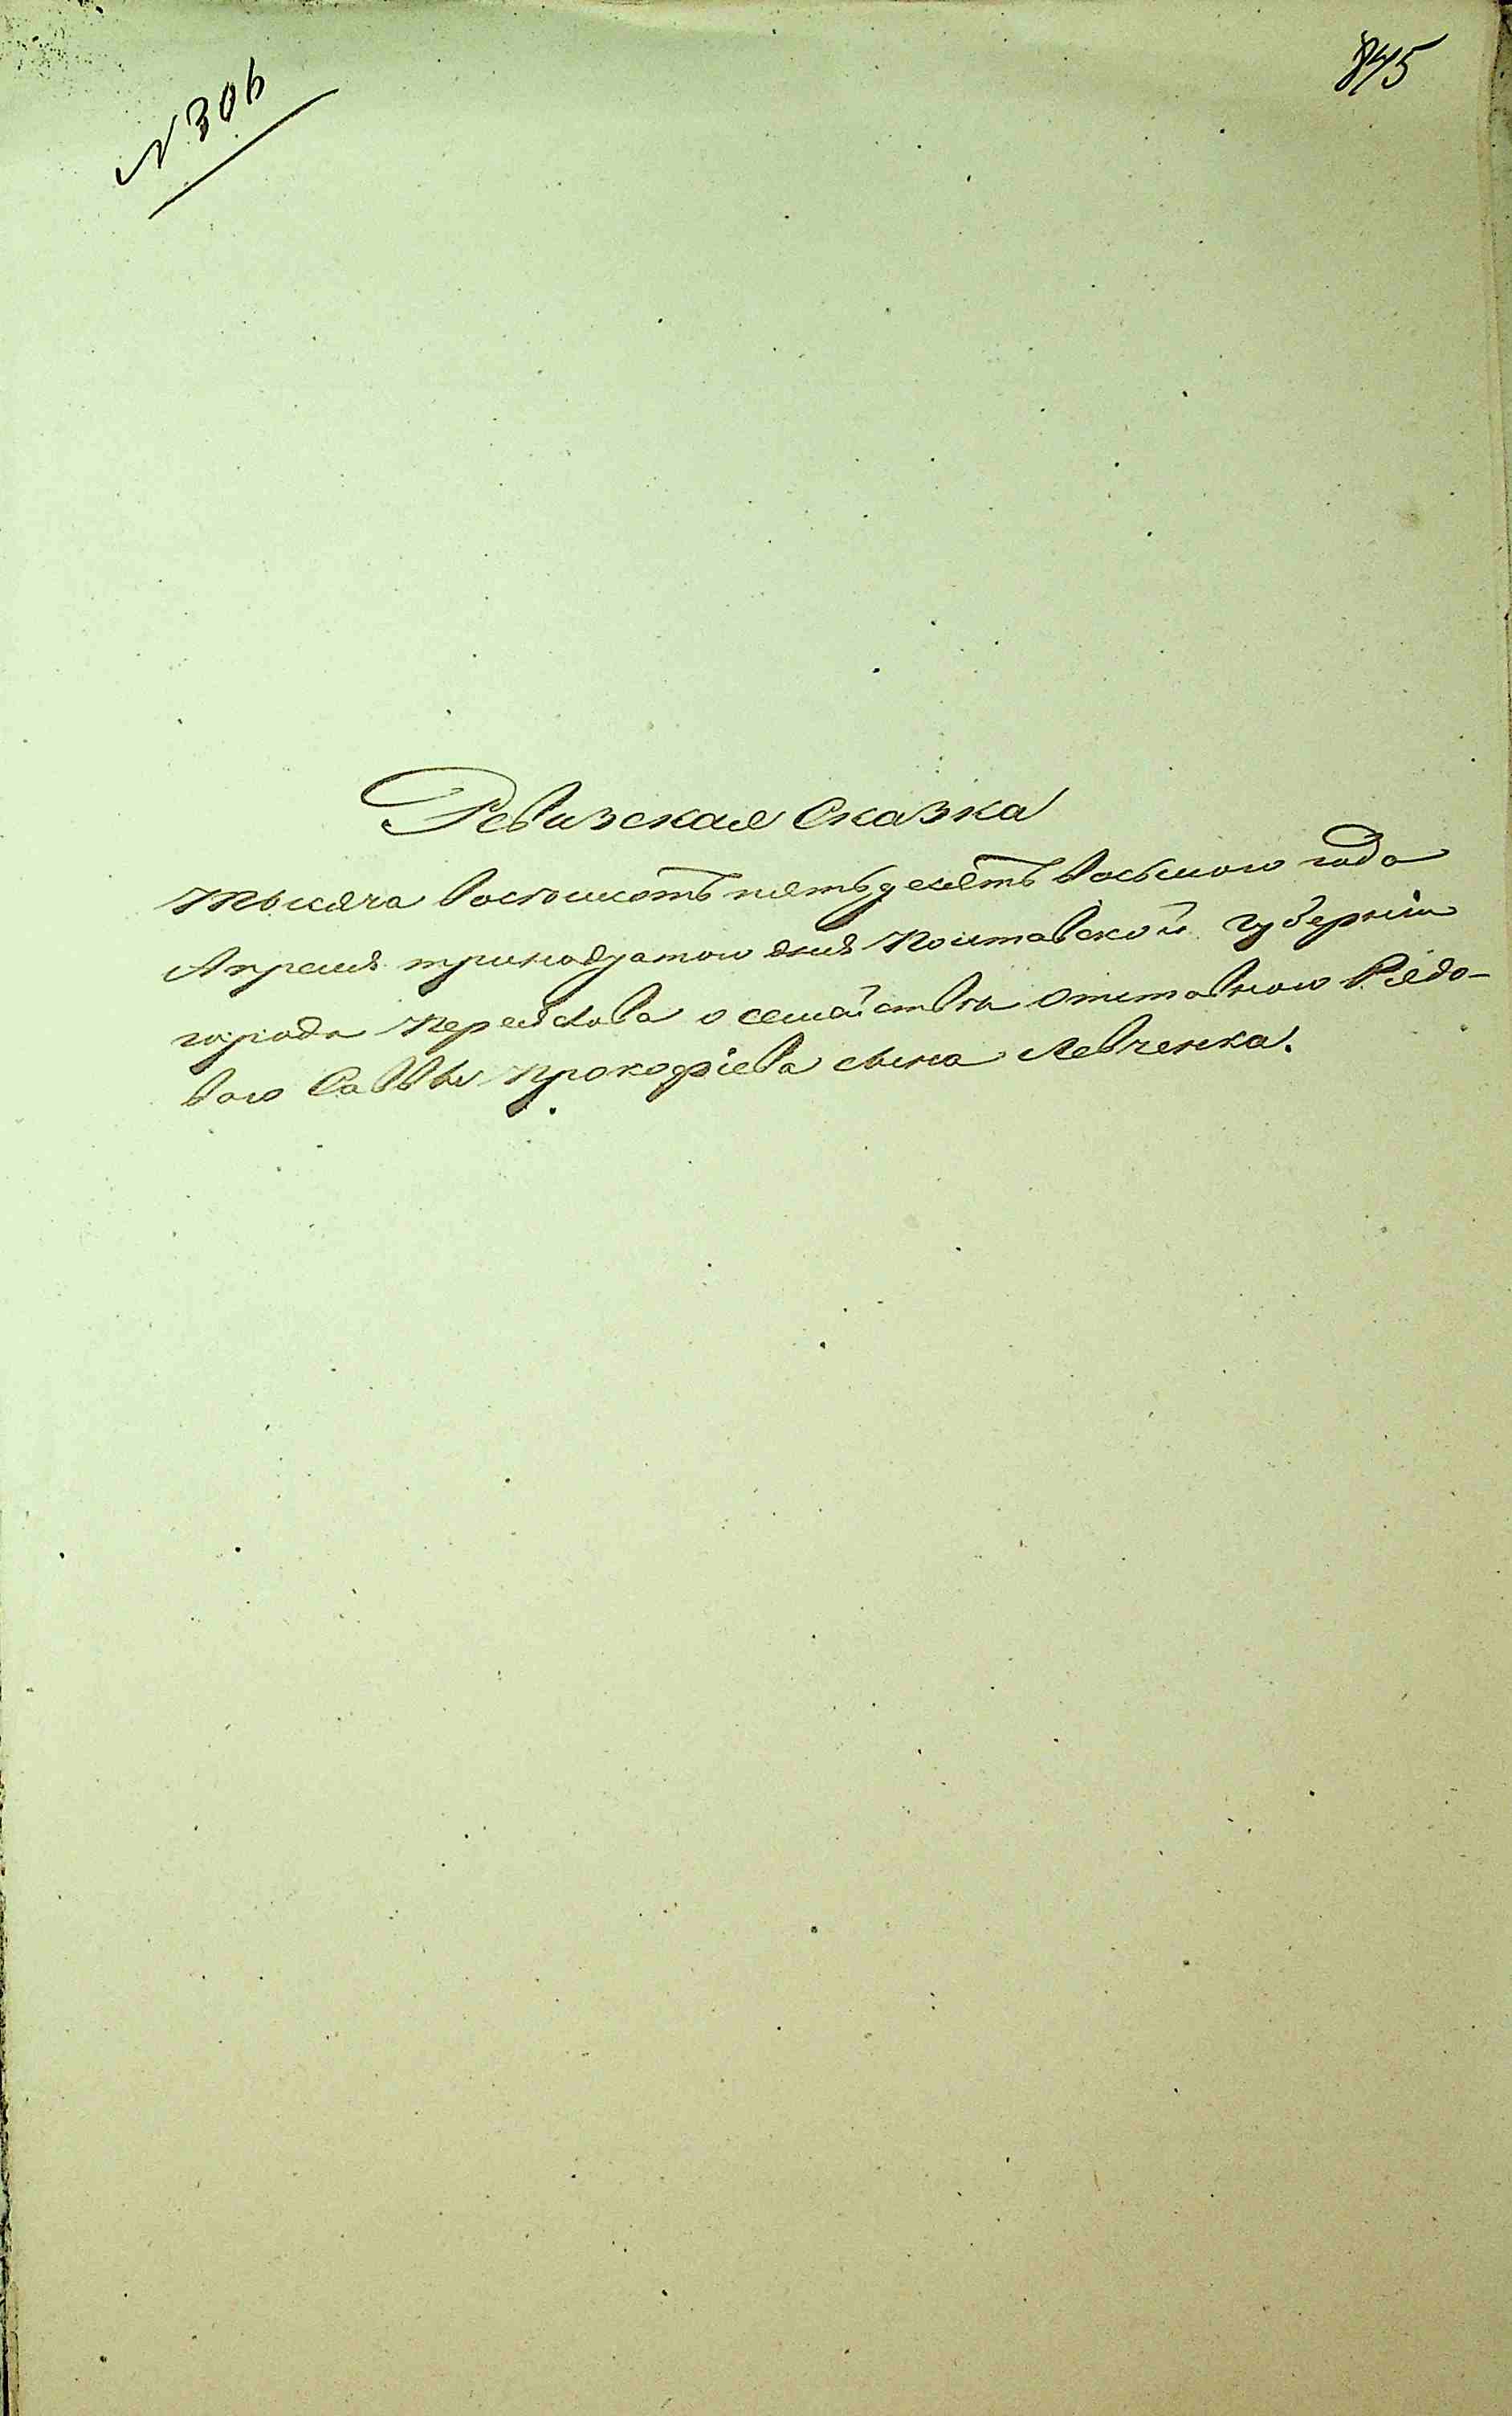 N 306
845
Ревизская Сказка
Тысяча восемьсотъ пятьдесятъ восьмого года
Апреля тринадцатого дня Полтавской Губерніи
города Переяслова о семействѣ Отставного Рядо-
вого Саввы Прокофіева сына Левченка.